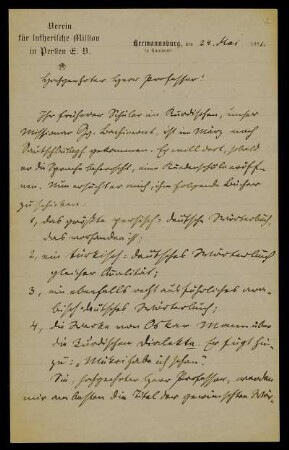 Verein
für lutherische Mission
in Persien E. V.
Hermannsburg, den 24. Mai
in Hannover
Hochgeehrter Herr Professor!
Ihr früherer Schüler im Kurdischen, unser
Missionar Pg. Bachimont, ist im März nach
Sautschbulagh gekommen. Er will dort, sobald
er die Sprache beherrscht, eine Kurdenschule eröff-
nen. Nun ersucht er mich, ihm folgende Bücher
zu schicken:
1, das größte persisch-deutsche Wörterbuch,
das vorhanden ist;
2, ein türkisch-deutsches Wörterbuch
gleicher Qualität;
3, ein ebenfalls recht ausführliches ara-
bisch-deutsches Wörterbuch;
4, die Werke von Oskar Mann über
die kurdischen Dialekte. Er fügt hin-
zu: "Mukri habe ich schon."
Sie, hochgeehrter Herr Professor, werden
mir am besten die Titel der gewünschten Wör-